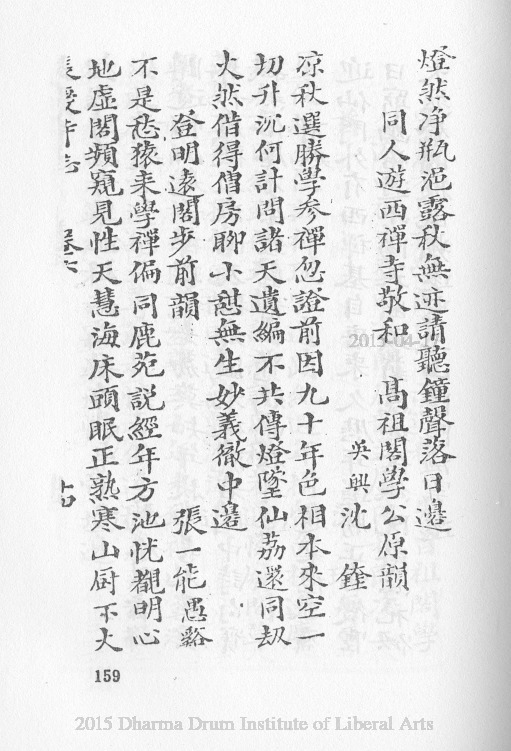 燈然净瓶浥露秋無迹請聽鐘聲落日邊
同人遊西禪寺敬和 髙祖閣學公原韻
吳興沈 銓
凉秋選勝學参禪忽證前因九十年色相本來空一
切升沉何計問諸天遺編不共傳燈墜仙荔還同刼
火然借得僧房聊小憇無生妙義徹中邊
登明遠閣步前韻 張一能 愚谿
不是愁猿来學禪偏同鹿苑説經年方池恍覩明心
地虛閣頻窺見性天慧海床頭眠正熟寒山厨下火
長慶寺志 卷六 十四
159
2015-04-
2015 Dharma Drum Institute of Liberal Arts